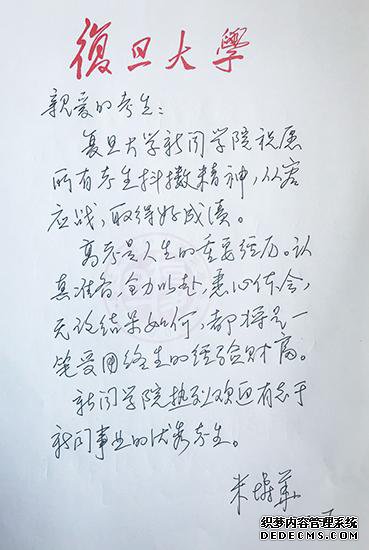 復旦大學
亲爱的考生：
复旦大学新闻学院祝愿
所有考生抖擞精神，从容
应战，取得好成绩。
高考是人生的重要经历。认
真准备，全力以赴，悉心体会，
无论结果如何，都将是一
笔受用终生的经验财富。
新闻学院热烈欢迎有志于
新闻事业的优秀考生。
米博华
织梦内容管理系统
DEDECMS.COM